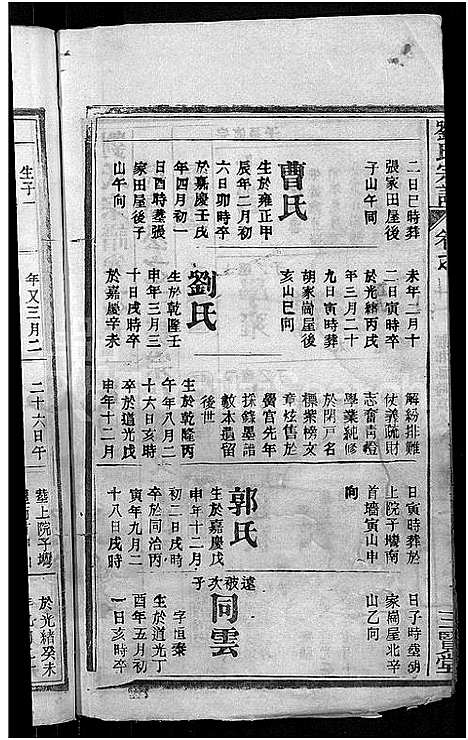 劉氏宗譜
卷之
三賢堂
二日巳時葬
張家田屋後
子山午向
曹氏
生於雍正甲
辰年二月初
六日卯時卒
於嘉慶壬戌
年四月初一
日酉時塟張
家田屋後子
山午向
未年二月十
二日寅時卒
於光緒丙戌
年三月二十
九日寅時葬
胡家崗屋後
亥山巳向
劉氏
生於乾隆壬
申年三月三
十日戌時卒
於嘉慶辛未
解紛排難
仗義疏財
志奮青燈
學業純修
於閉戶名
標紫榜文
章炫售於
黌宮先年
採錄墨譜
數本遺留
後世
生於乾隆丙
午年八月二
十六日亥時
卒於道光戊
申年十二月
日寅時葬於
上院子塆南
首墻寅山申
向
郭氏
生於嘉慶戊
申年十二月
初二日戌時
卒於同治丙
寅年九月二
十八日戌時
日子時塟胡
家崗屋北辛
山乙向
遠被次子
同雲
字恒泰
生於道光丁
酉年五月初
一日亥時卒
生子一
年又三月二
二十六日午
塟上院子塆
於光緒癸未